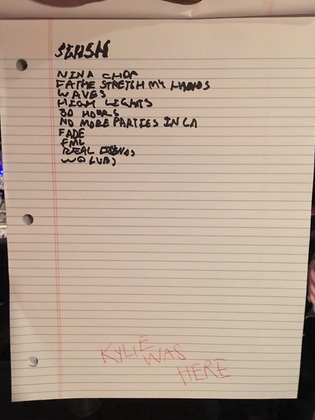 SWISH
NINA CHOP
FATHE STRETCH MY HANDS
WAVES
HIGH LIGHTS
30 HOURS
NO MORE PARTIES IN LA
FADE
FML
REAL FRIENDS
WOLVES
KYLIE WAS
HERE